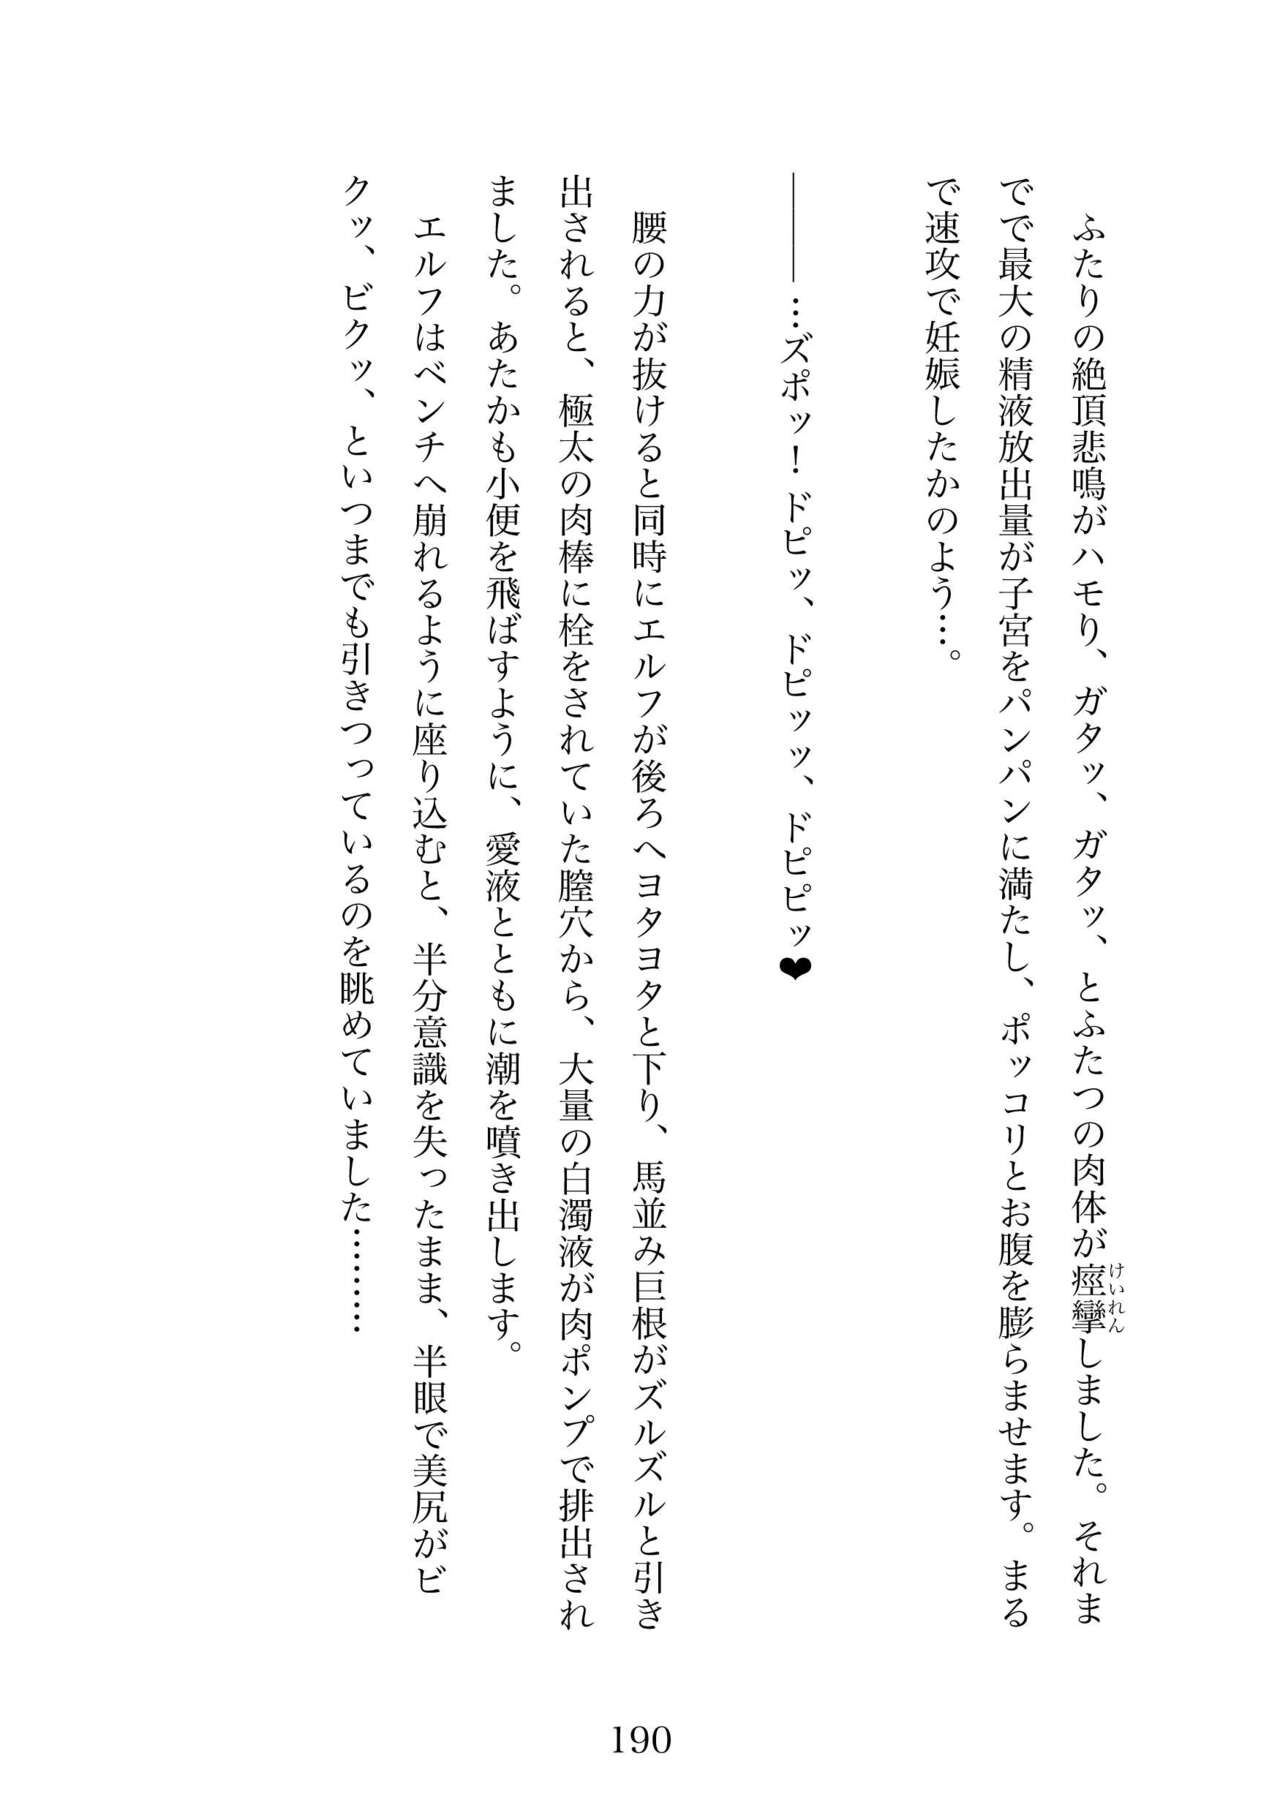 ふたりの絶頂悲鳴がハモり、ガタッ、ガタッ、とふたつの肉体が痙攣しました。それま
けいれん
でで最大の精液放出量が子宮をパンパンに満たし、ポッコリとお腹を膨らませます。まる
で速攻で妊娠したかのよう…。
―――…ズポッ！ドピッ、ドピッッ、ドピピッ❤
腰の力が抜けると同時にエルフが後ろへヨタヨタと下り、馬並み巨根がズルズルと引き
出されると、極太の肉棒に栓をされていた膣穴から、大量の白濁液が肉ポンプで排出され
ました。あたかも小便を飛ばすように、愛液とともに潮を噴き出します。
エルフはベンチへ崩れるように座り込むと、半分意識を失ったまま、半眼で美尻がビ
クッ、ビクッ、といつまでも引きつっているのを眺めていました………
190